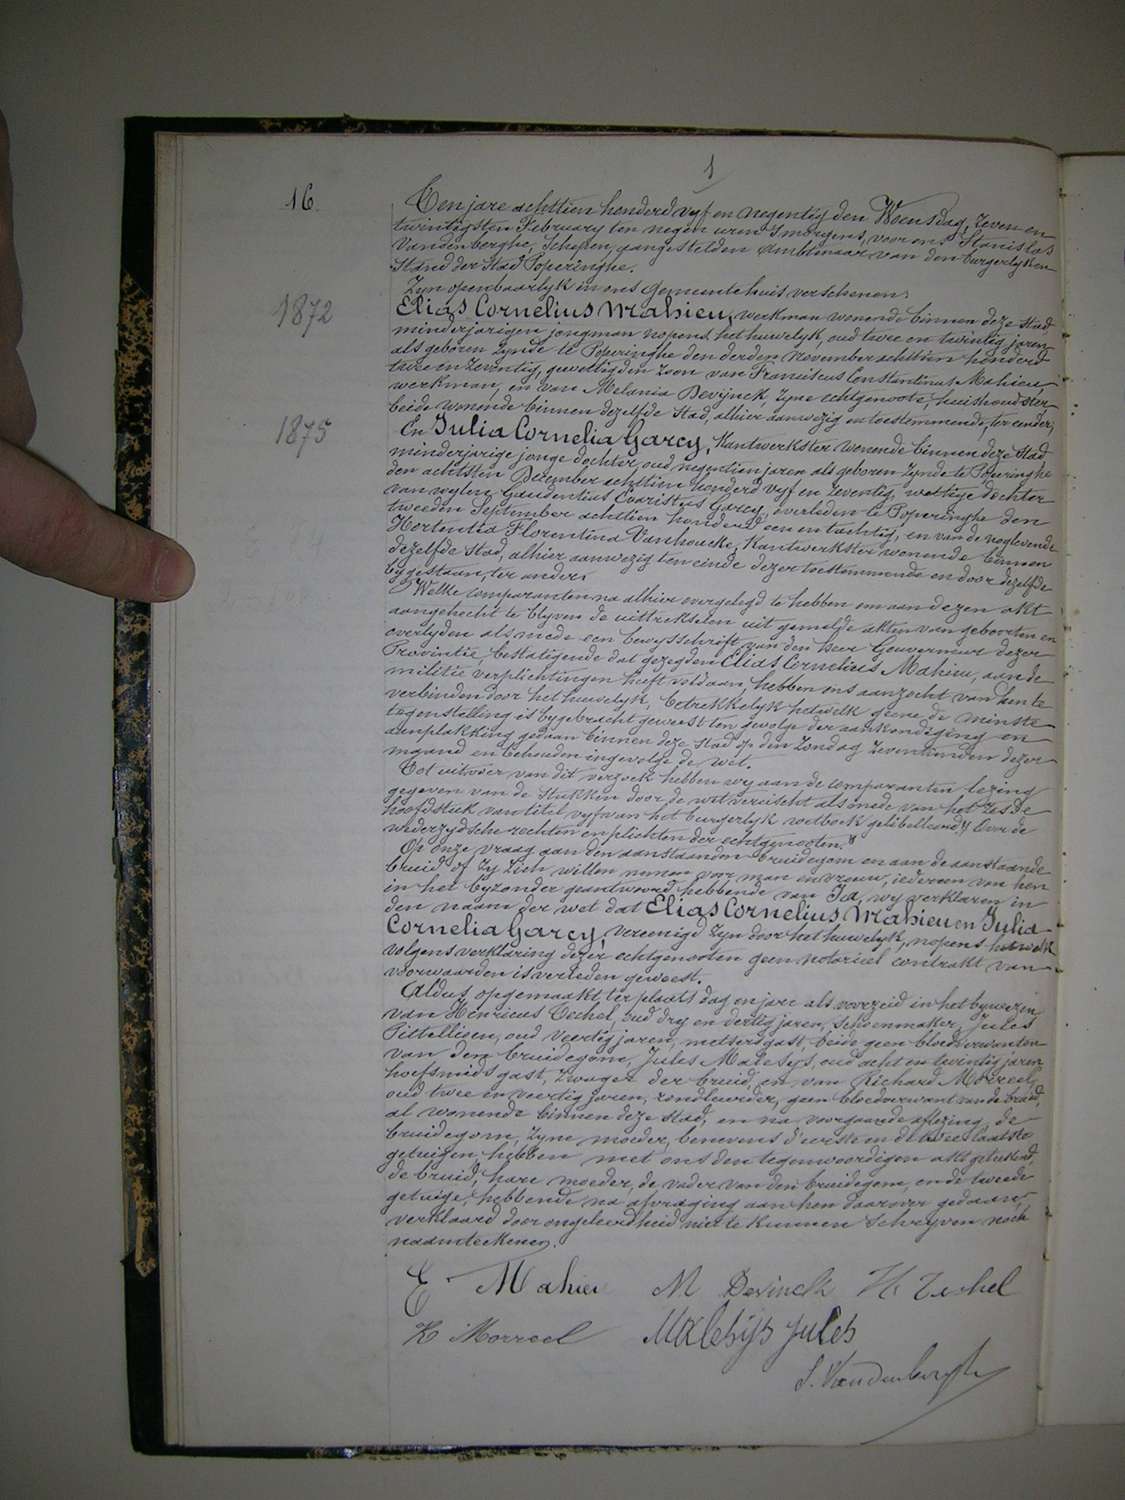 1
16.
Ten jare achttien honderd vyf en negentig den Woensdag, Zeven en
twintigsten February ten negen uren 'smorgens, voor ons Stanislas
Vandenberghe, Schepen, aangestelden Ambtenaar van den burgerlyken
Stand der Stad Poperinghe.
Zyn openbaarlyk in ons Gemeentehuis verschenen:
1872
Elias Cornelius Mahieu, werkman wonende binnen deze stad,
minderjarigen jongman nopens het huwelyk, oud twee en twintig jaren
als geboren zynde te Poperinghe den derden November achttien honderd
twee en zeventig, gewettigden zoon van Franciscus Constantinus Mahieu,
werkman, en van Melania Devijnck, zyne echtgenoote, huishoudster
beide wonende binnen dezelfde Stad, alhier aanwezig en toestemmende, ter eender;
1875
En Julia Cornelia Garcy, Kantwerkster wonende binnen deze Stad
minderjarige jonge dochter, oud negentien jaren als geboren zynde te Poperinghe
den achtsten December achttien honderd vyf en zeventig, wettige dochter
van wylen Gaudentius Evaristus Garcy, overleden te Poperinghe den
tweeden September achttien honderd een en tachtig, en van de noglevende
Hortentia Florentina Vanhoucke, Kantwerkster wonende binnen
dezelfde stad, alhier aanwezig ten einde dezer toestemmende en door dezelfde
bygestaan, ter ander.
Welke comparanten na alhier overgelegd te hebben om aan dezen akt
aangehecht te blyven de uittrekselen uit gemelde akten van geboorten en
overlyden als mede een bewysschrift van den Heer Gouverneur dezer
Provintie, bestatigende dat gezegden Elias Cornelius Mahieu, aan de
militie verplichtingen heeft voldaan, hebben ons aanzocht van hen te
verbinden door het huwelyk, betrekkelyk hetwelk geene de minste
tegenstelling is bygebracht geweest ten gevolge der aankondiging en
aanplakking gedaan binnen deze Stad op den Zondag Zeventienden dezer
maand en behouden ingevolge de wet.
Tot uitvoer van dit verzoek hebben wy aan de comparanten lezing
gegeven van de stukken door de wet vereischt als mede van het zesde
hoofdstuk van titel vyf van het burgerlyk wetboek gelibelleerd " Over de
wederzydsche rechten en plichten der echtgenooten."
Op onze vraag aan den aanstaanden bruidegom en aan de aanstaande
bruid of zy zich willen nemen voor man en vrouw, iedereen van hen
in het byzonder geantwoord hebbende van Ja, wy verklaren in
den naam der wet dat Elias Cornelius Mahieu en Julia
Cornelia Garcy, vereenigd zyn door het huwelyk, nopens hetwelk
volgens verklaring dezer echtgenooten geen notarieel contrakt van
voorwaarden is verleden geweest.
Aldus opgemaakt, ter plaats dag en jare als voorzeid in het bywezen
van Henricus Techel, oud dry en dertig jaren, schoenmaker, Jules
oud veertig jaren, metsersgast, beide geen bloedverwanten
van den bruidegom, Jules Malesys, oud acht en twintig jaren
hoefsmids gast, zwager der bruid, en van Richard Morreel,
oud twee en veertig jaren, geen bloedverwant van de bruid,
al wonende binnen deze stad, en na voorgaande aflezing, de
bruidegom, zyne moeder, benevens d'eerste en de twee laatste
getuigen hebben met ons den tegenwoordigen akt geteekend,
de bruid, hare moeder, de vader van den bruidegom, en de tweede
getuige, hebbende na afvraging aan hen daarover gedaan,
verklaard door ongeleerdheid niet te kunnen schryven noch
naamteekenen.
E Mahieu M Devinck H Techel
R Morreel Malesijs Jules
S. Vandenberghe